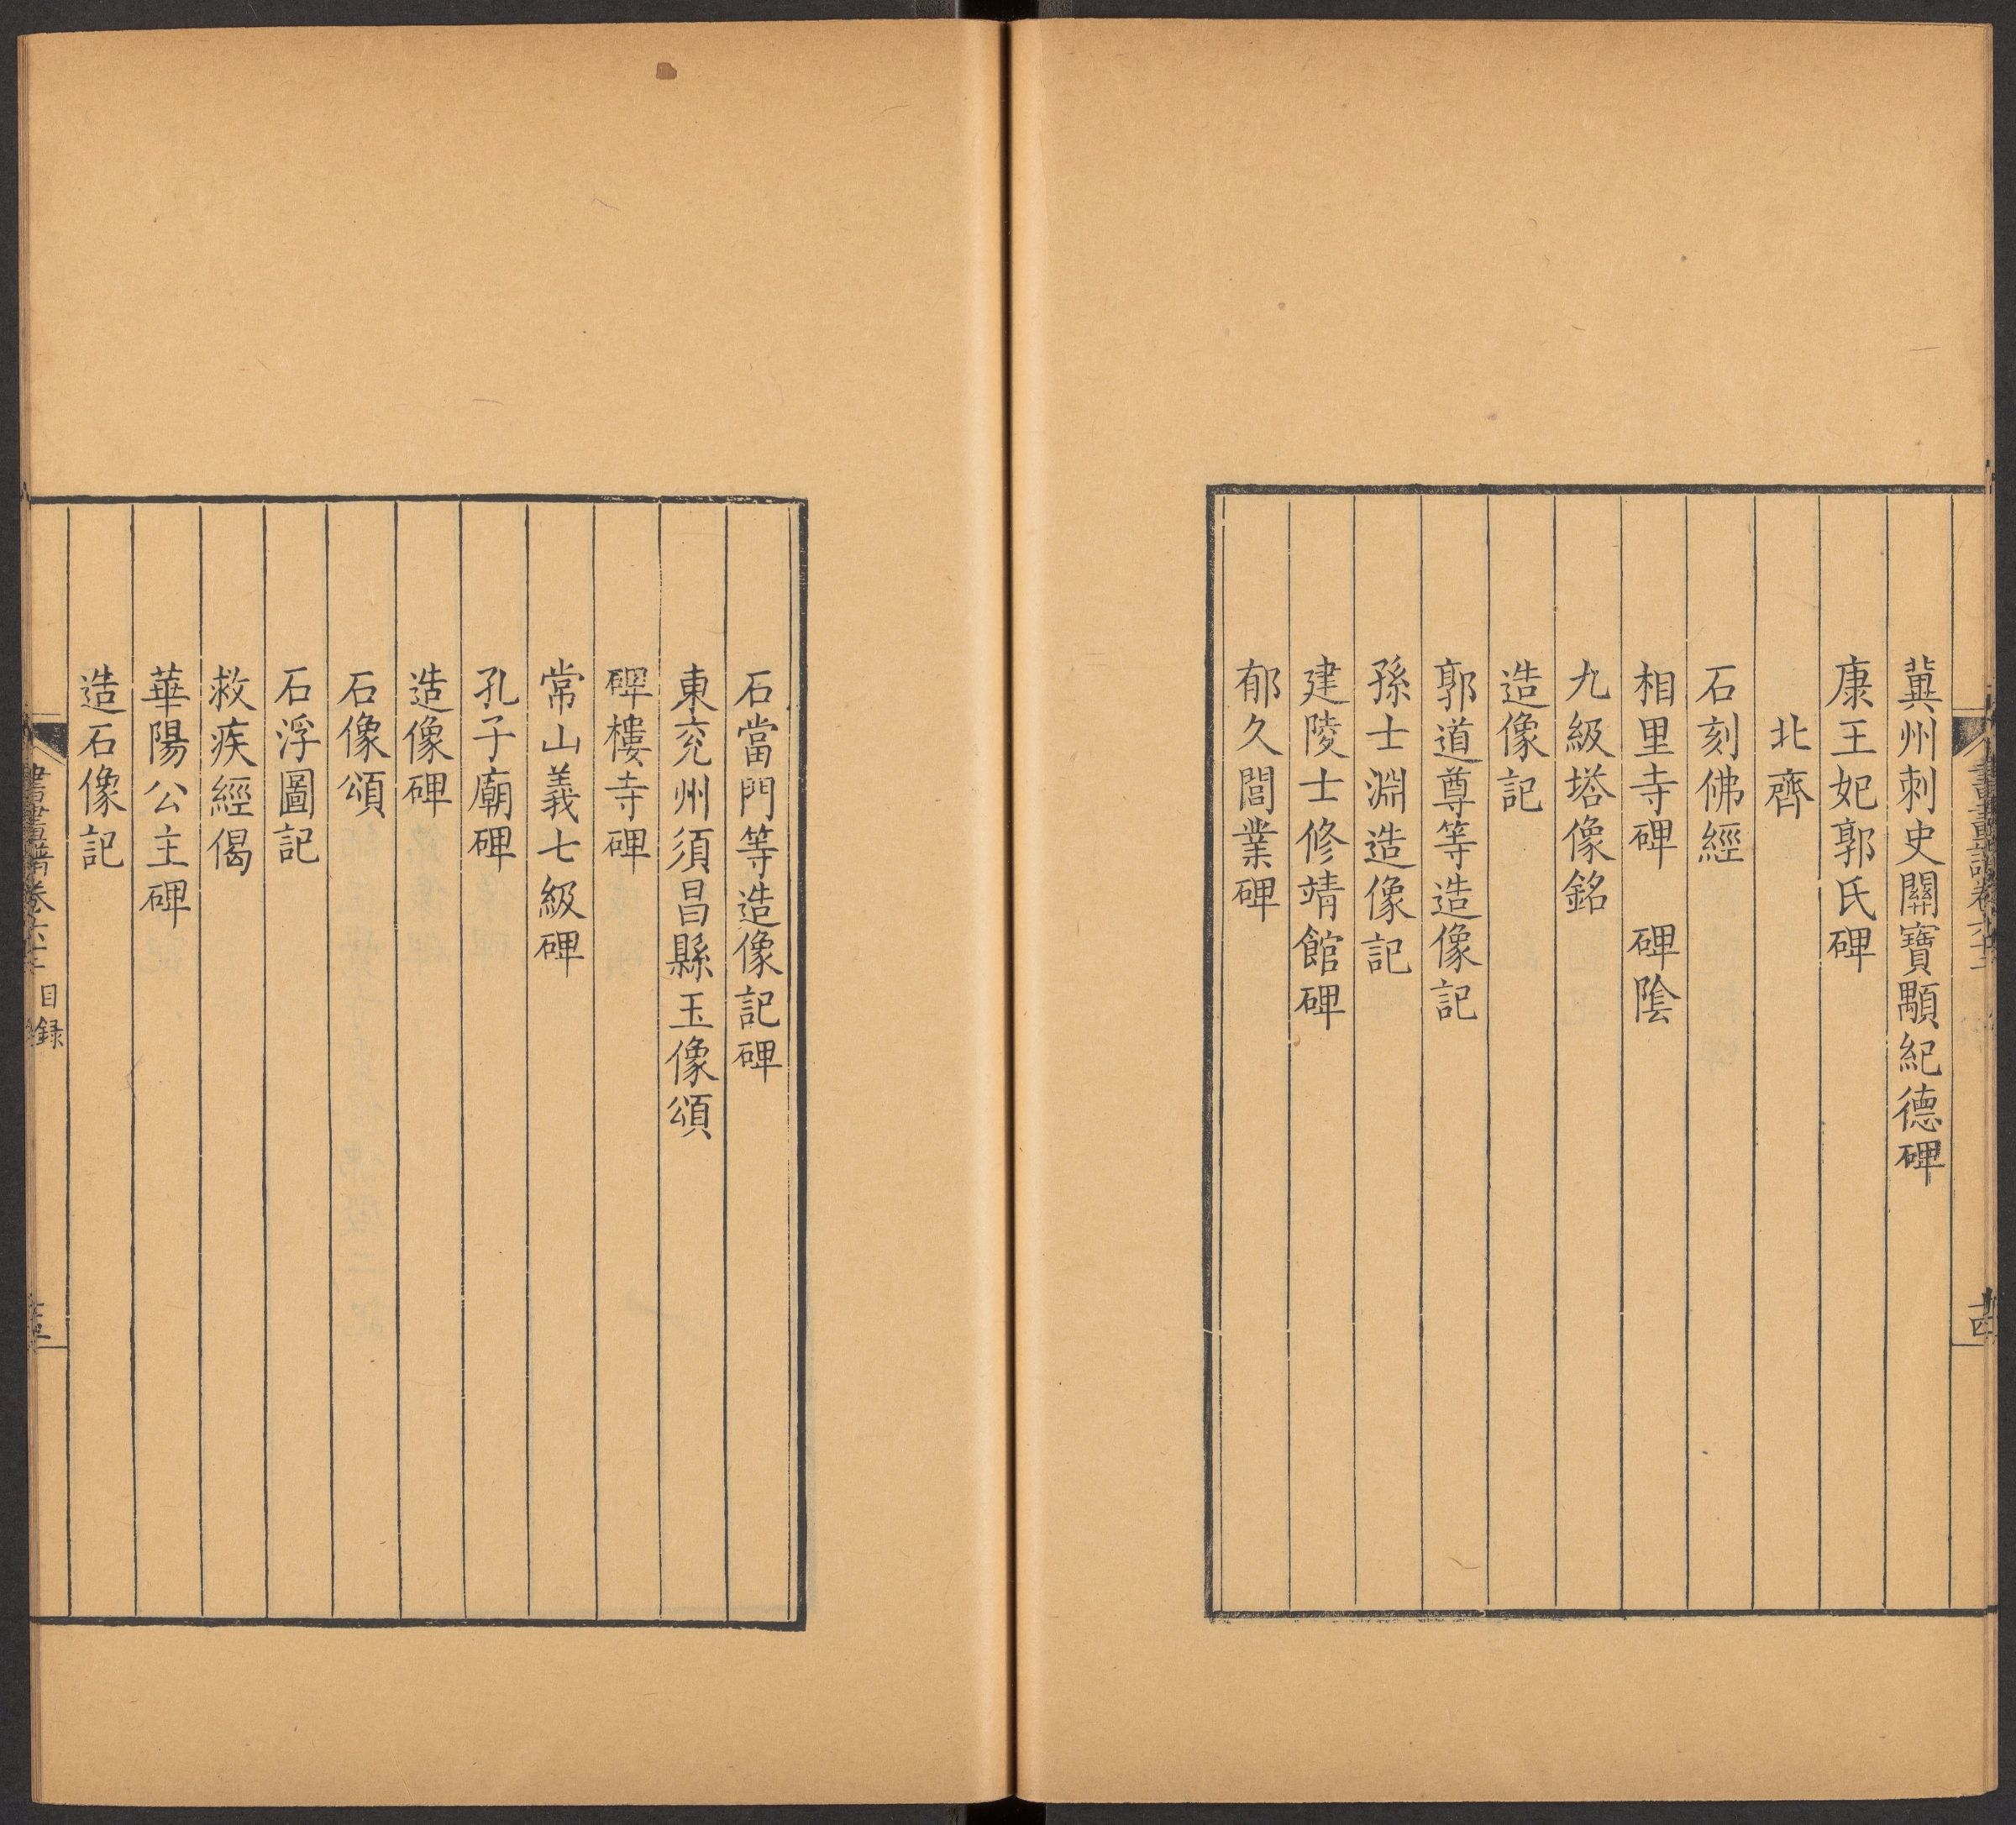 冀州刺史關寶顒紀德碑
康王妃郭氏碑
北齊
石刻佛經
相里寺碑　碑陰
九級塔像銘
造像記
郭道尊等造像記
孫士淵造像記
建陵士修靖館碑
郁久閭業碑
石當門等造像記碑
東兖州須昌縣玉像頌
碑樓寺碑
常山義七級碑
孔子廟碑
造像碑
石像頌
石浮圖記
救疾經偈
華陽公主碑
造石像記
目錄